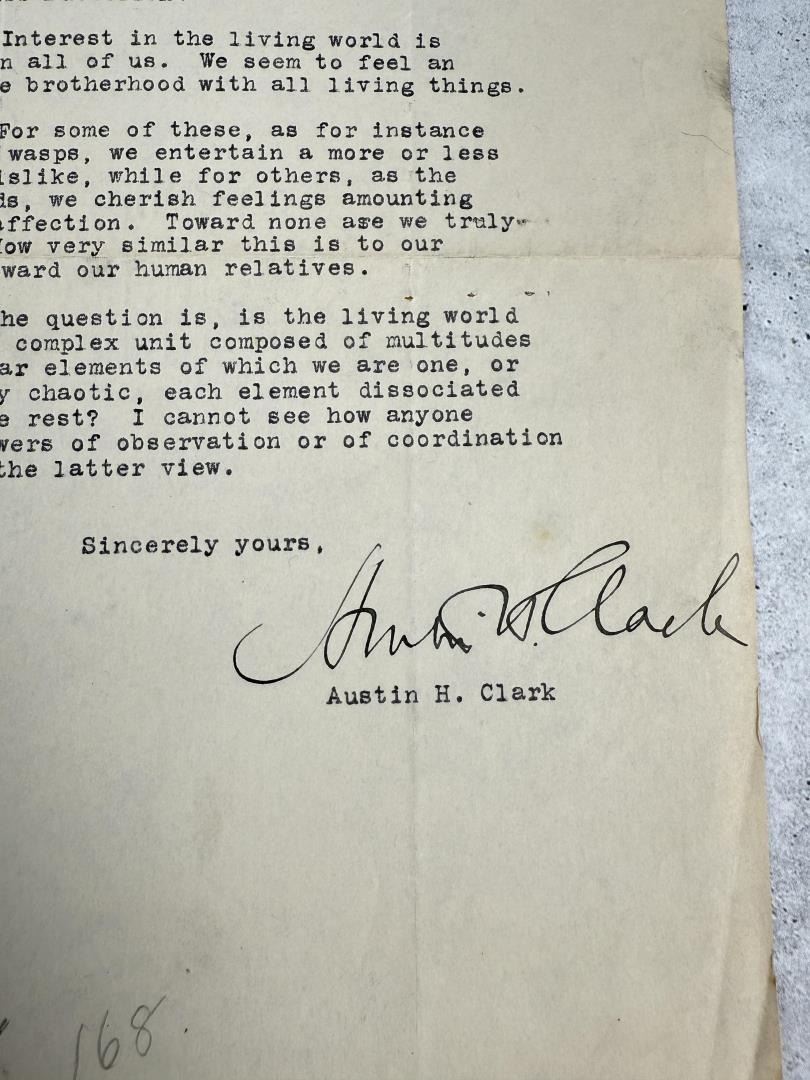 Interest in the living world is
n all of us. We seem to feel an
e brotherhood with all living things.
For some of these, as for instance
wasps, we entertain a more or less
islike, while for others, as the
ds, we cherish feelings amounting
affection. Toward none are we truly
How very similar this is to our
ward our human relatives.
he question is, is the living world
complex unit composed of multitudes
ar elements of which we are one, or
y chaotic, each element dissociated
e rest? I cannot see how anyone
wers of observation or of coordination
the latter view.
Sincerely yours,
Austin H. Clark
Austin H. Clark
168